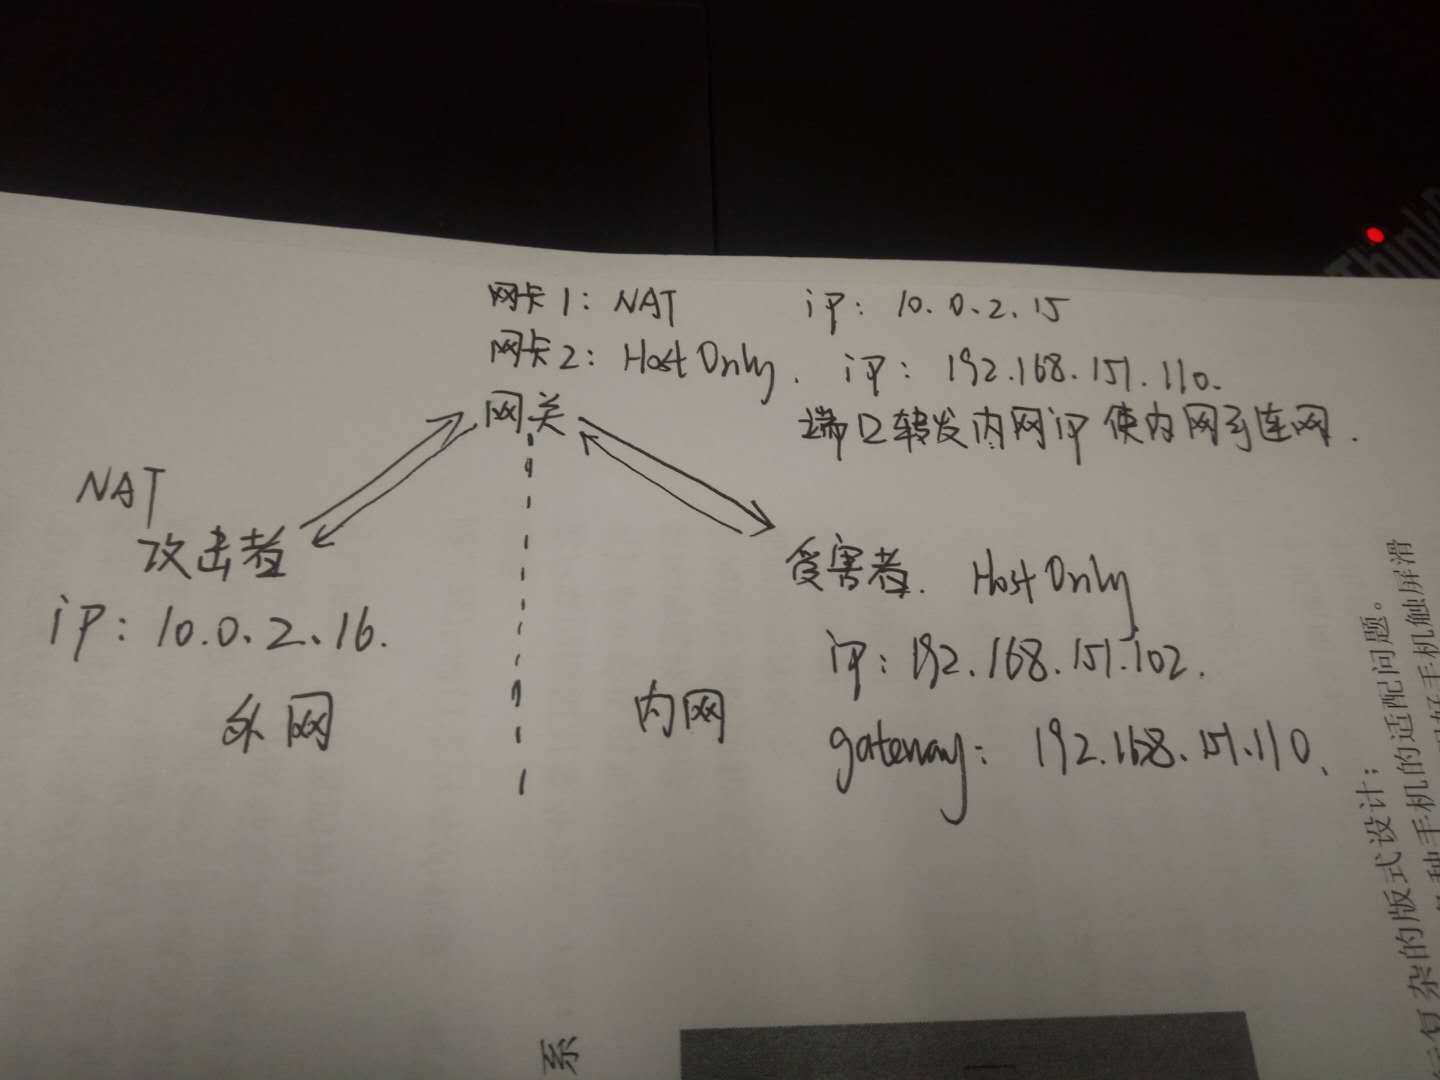 网卡1: NAT ip: 10.0.2.15
网卡2: Host Only. ip: 192.168.151.110.
网关 端口转发内网ip 使内网可连网.
NAT
攻击者
ip: 10.0.2.16.
外网
受害者. Host Only
ip: 192.168.151.102.
内网
gateway: 192.168.151.110.
Think
杂的版式设计；
种手机的适配问题。
好手机触屏滑
系